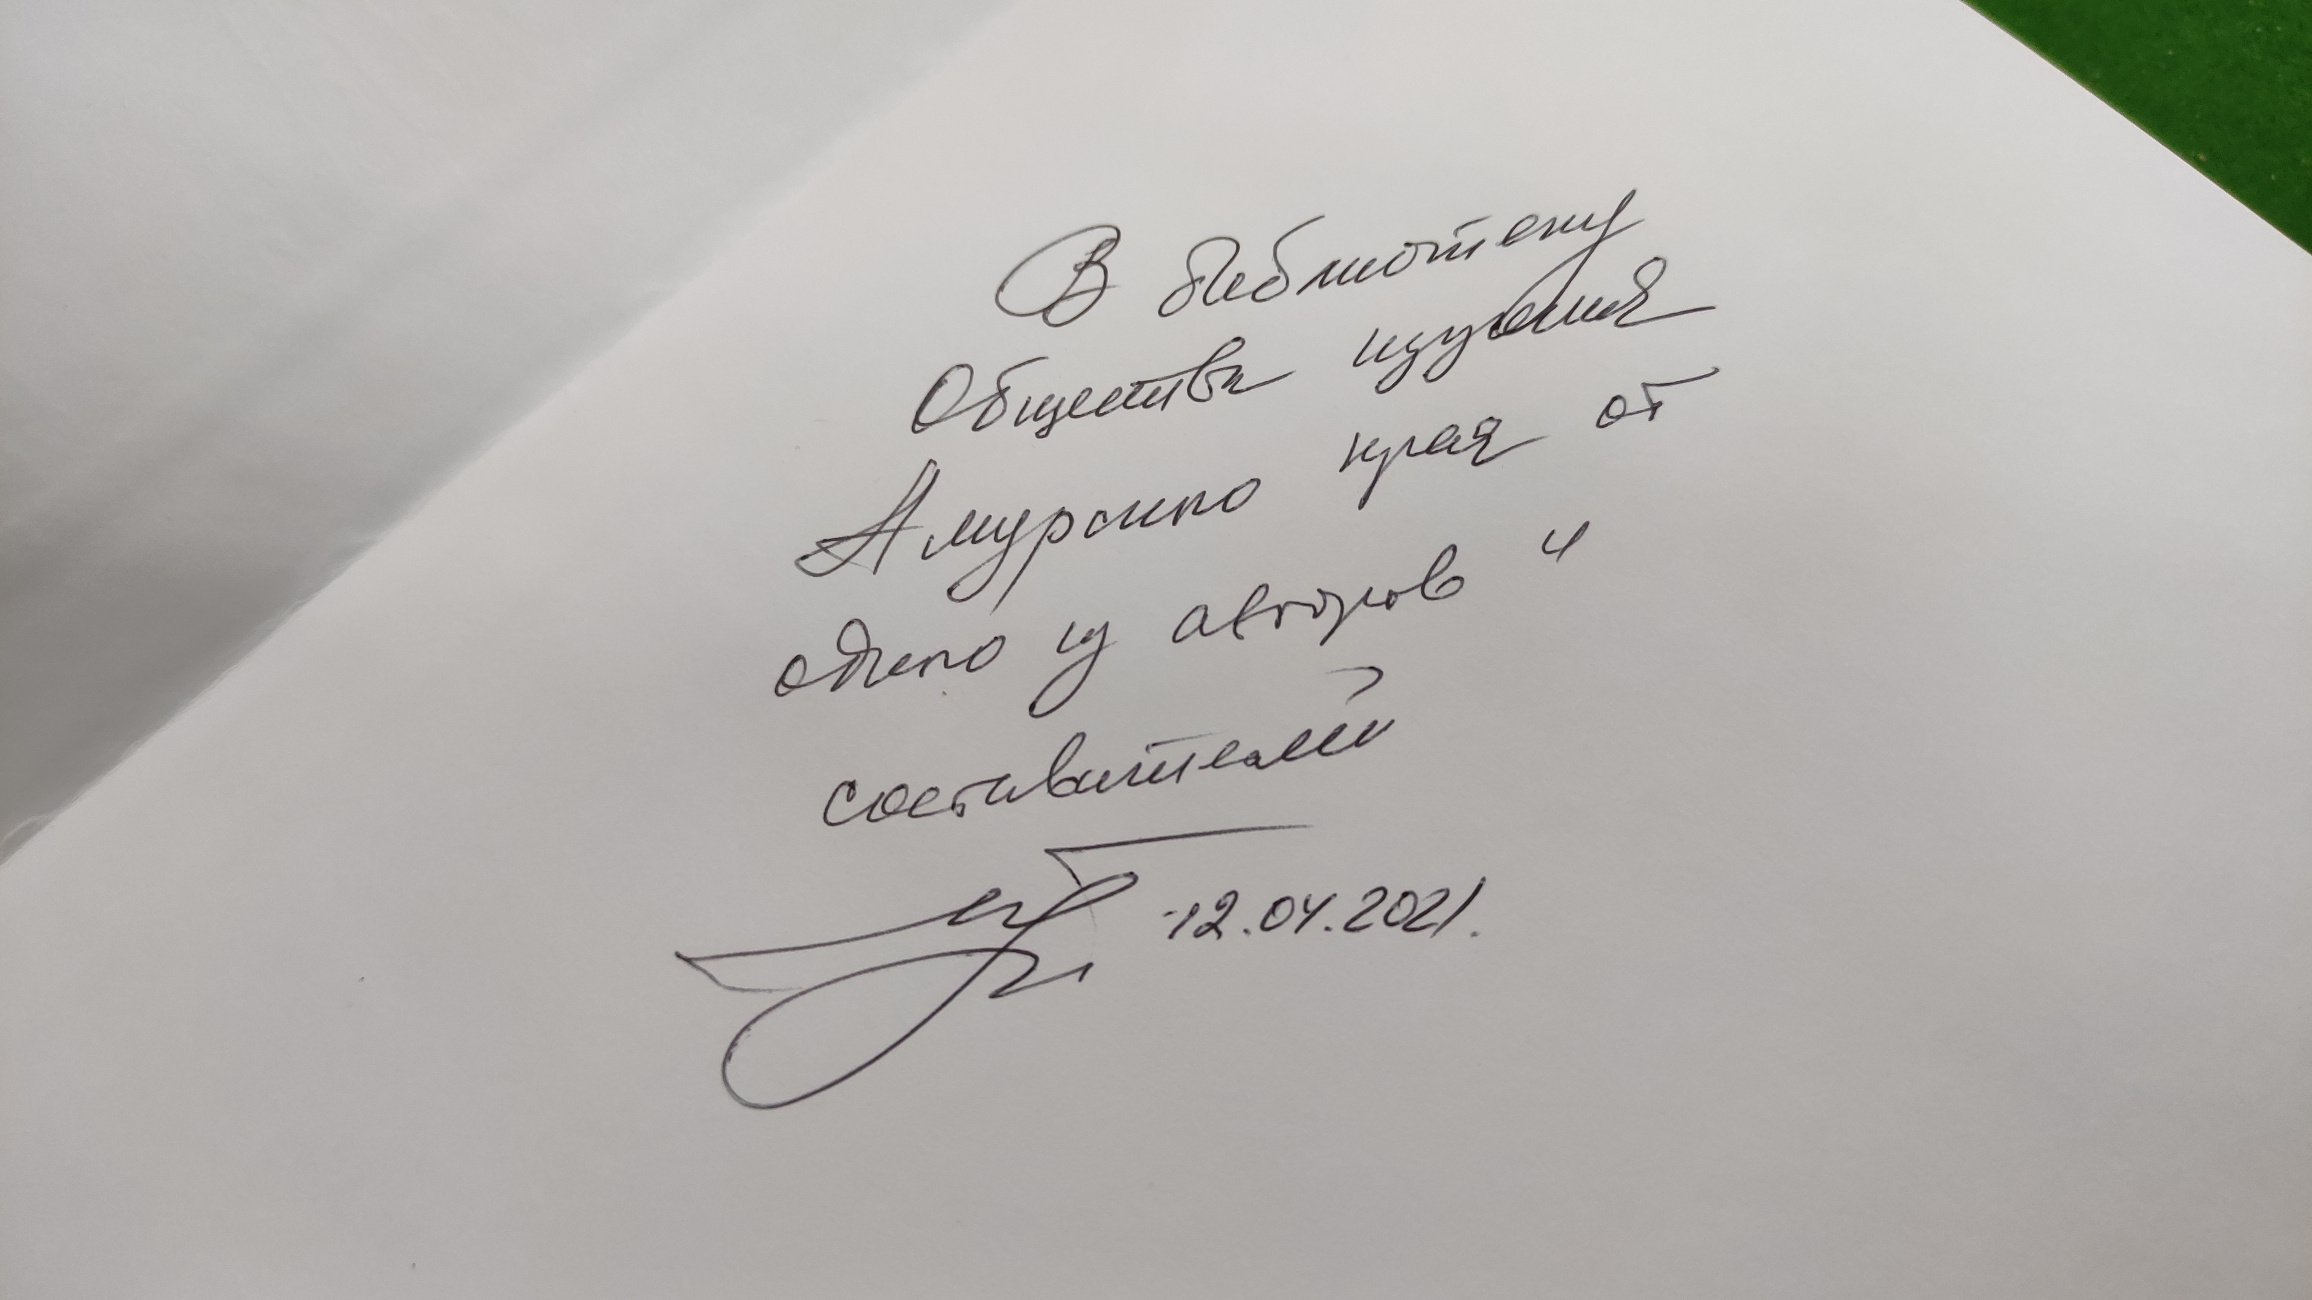 В библиотеку
Общества изучения
Амурского края от
одного из авторов и
составителей
12.04.2021.